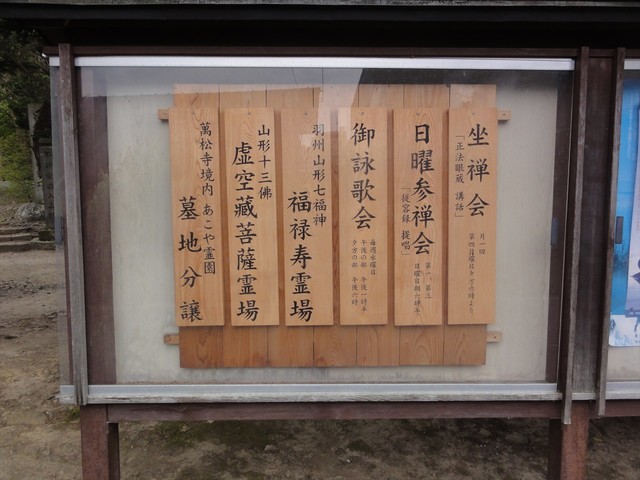 坐禅会
「正法眼蔵 講話」
月一回
第四月曜日夕方六時より
日曜参禅会
「従容録 提唱」
第一、第三
日曜日朝六時半
御詠歌会
毎週水曜日
午後の部 午後一時半
夕方の部 午後六時
羽州山形七福神
福禄寿霊場
山形十三佛
虚空蔵菩薩霊場
萬松寺境内 あこや霊園
墓地分譲